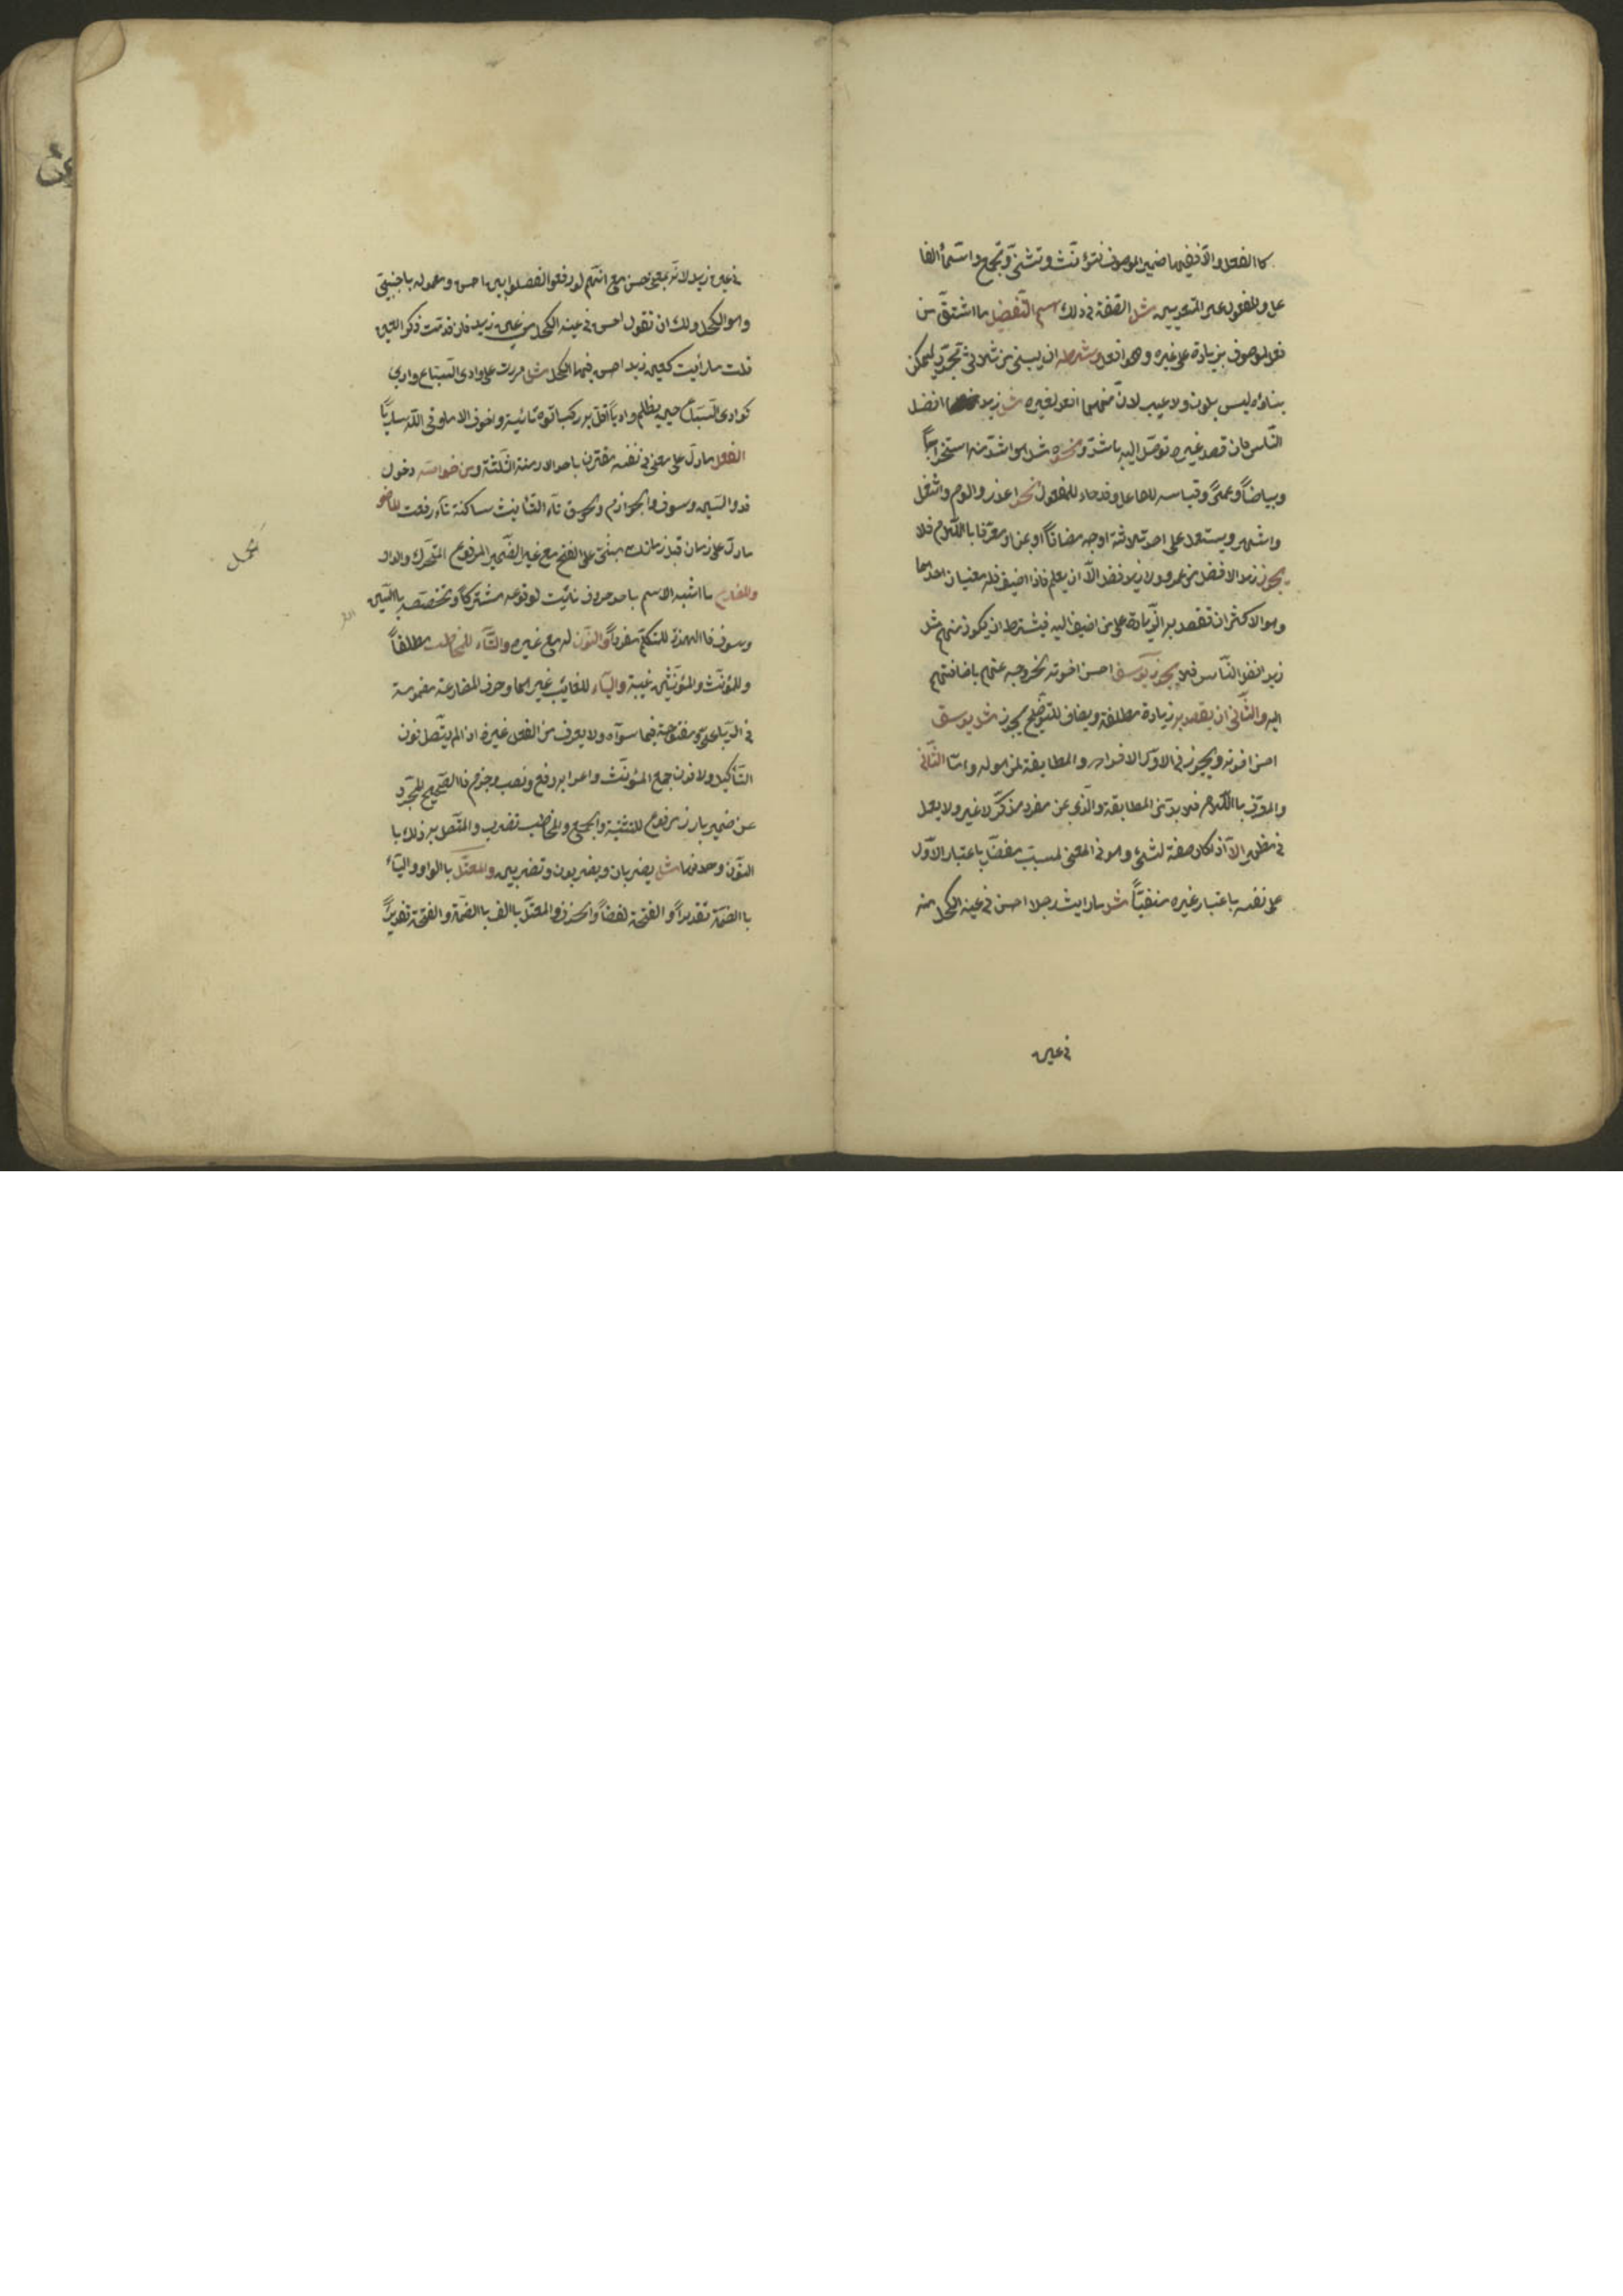 كاالفعل والا ففيها ضمير الموصوف فتؤنّث وتثنّى وتجمع واسمأ الفا
عل والمفعول غير المتعديين مثل الصّفة فى ذلك اسم التّفضيل ما اشتقّ من
فعل لموصوف بزيادة على غيره وهو افعل وشرطه ان يبنى من ثلاثى مجرّد ليمكن
بناؤه ليس بلون ولا عيب لانّ منهما افعل لغيره مثل زيد افضل
النّاس فان قصد غيره توصّل اليه باشدّ ونحوه مثل هو اشدّ منه استخراجاً
وبياضاً وعمىً وقياسه للفاعل وقد جاء للمفعول نحو اعذر والوم واشغل
واشهر ويستعمل على احد ثلاثة اوجه مضافاً او بمن او معرّفا باللّام فلا
يجوز زيد الافضل من عمرو ولا زيد افضل الّا ان يعلم فاذا اضيف فله معنيان احدهما
وهو الاكثر ان تقصد به الزّيادة على من اضيف اليه فيشترط ان يكون منهم مثل
زيد افضل النّاس فلا يجوز يوسف احسن اخوته لخروجه عنهم باضافتهم
اليه والثّانى ان يقصد به زيادة مطلقة ويضاف للتّوضيح يجوز مثل يوسف
احسن اخوته ويجوز فى الاوّل الافراد والمطابقة لمن هو له وامّا الثّانى
والمعرّف باللّام فلا بدّ من المطابقة والّذى بمن مفرد مذكّر لا غير ولا يعمل
فى مظهر الّا اذا كان صفة لشئ وهو فى المعنى لمسبّب مفضّل باعتبار الاوّل
على نفسه باعتبار غيره منفيّاً مثل ما رايت رجلا احسن فى عينه الكحل منه
فى عين
فى عين زيد لانّه بمعنى حسن مع انّهم لو رفعوا لفصلوا بين احسن ومعموله باجنبىّ
وهو الكحل ولك ان تقول احسن فى عينه الكحل من عين زيد فان قدّمت ذكر العين
قلت ما رأيت كعين زيد احسن فيها الكحل مثل مررت على وادى السّباع ولا ارى
كوادى السّباع حين يظلم وادياً اقلّ به ركب اتوه تائية واخوف الا ما وقى اللّه ساريّاً
الفعل ما دلّ على معنى فى نفسه مقترن باحد الازمنة الثّلثة ومن خواصّه دخول
قد والسّين وسوف والجوازم ولحوق تآء التّأنيث ساكنة تآء فعلت الماضى
ما دلّ على زمان قبل زمانك مبنىّ على الفتح مع غير الضّمير المرفوع المتحرّك والواو
والمضارع ما اشبه الاسم باحد حروف نائيت لوقوعه مشتركاً وتخصّصه باالسّين
وسوف فاالهمزة للمتكلّم مفرداً والنّون له مع غيره والتّآء للمخاطب مطلقاً
والمؤنّث والمؤنّثين غيبة واليآء للغائب غيرهما وحرف المضارعة مضمومة
فى الرّباعىّ ومفتوحة فيما سوآه ولا يعرف من الفعل غيره اذا لم يتّصل نون
التّأكيد ولا نون جمع المؤنّث واعرابه رفع ونصب وجزم فاالصّحيح المجرّد
عن ضمير بارز مرفوع للتّثنية والجمع والمخاطب تضرب والمتّصل به ذلك با
النّون وحذفها مثل يضربان ويضربون وتضربين والمعتلّ باالواو واليآء
باالضمّة تقديراً والفتحة لفضاً والحذف والمعتلّ باالف باالضمّة والفتحة تقديراً